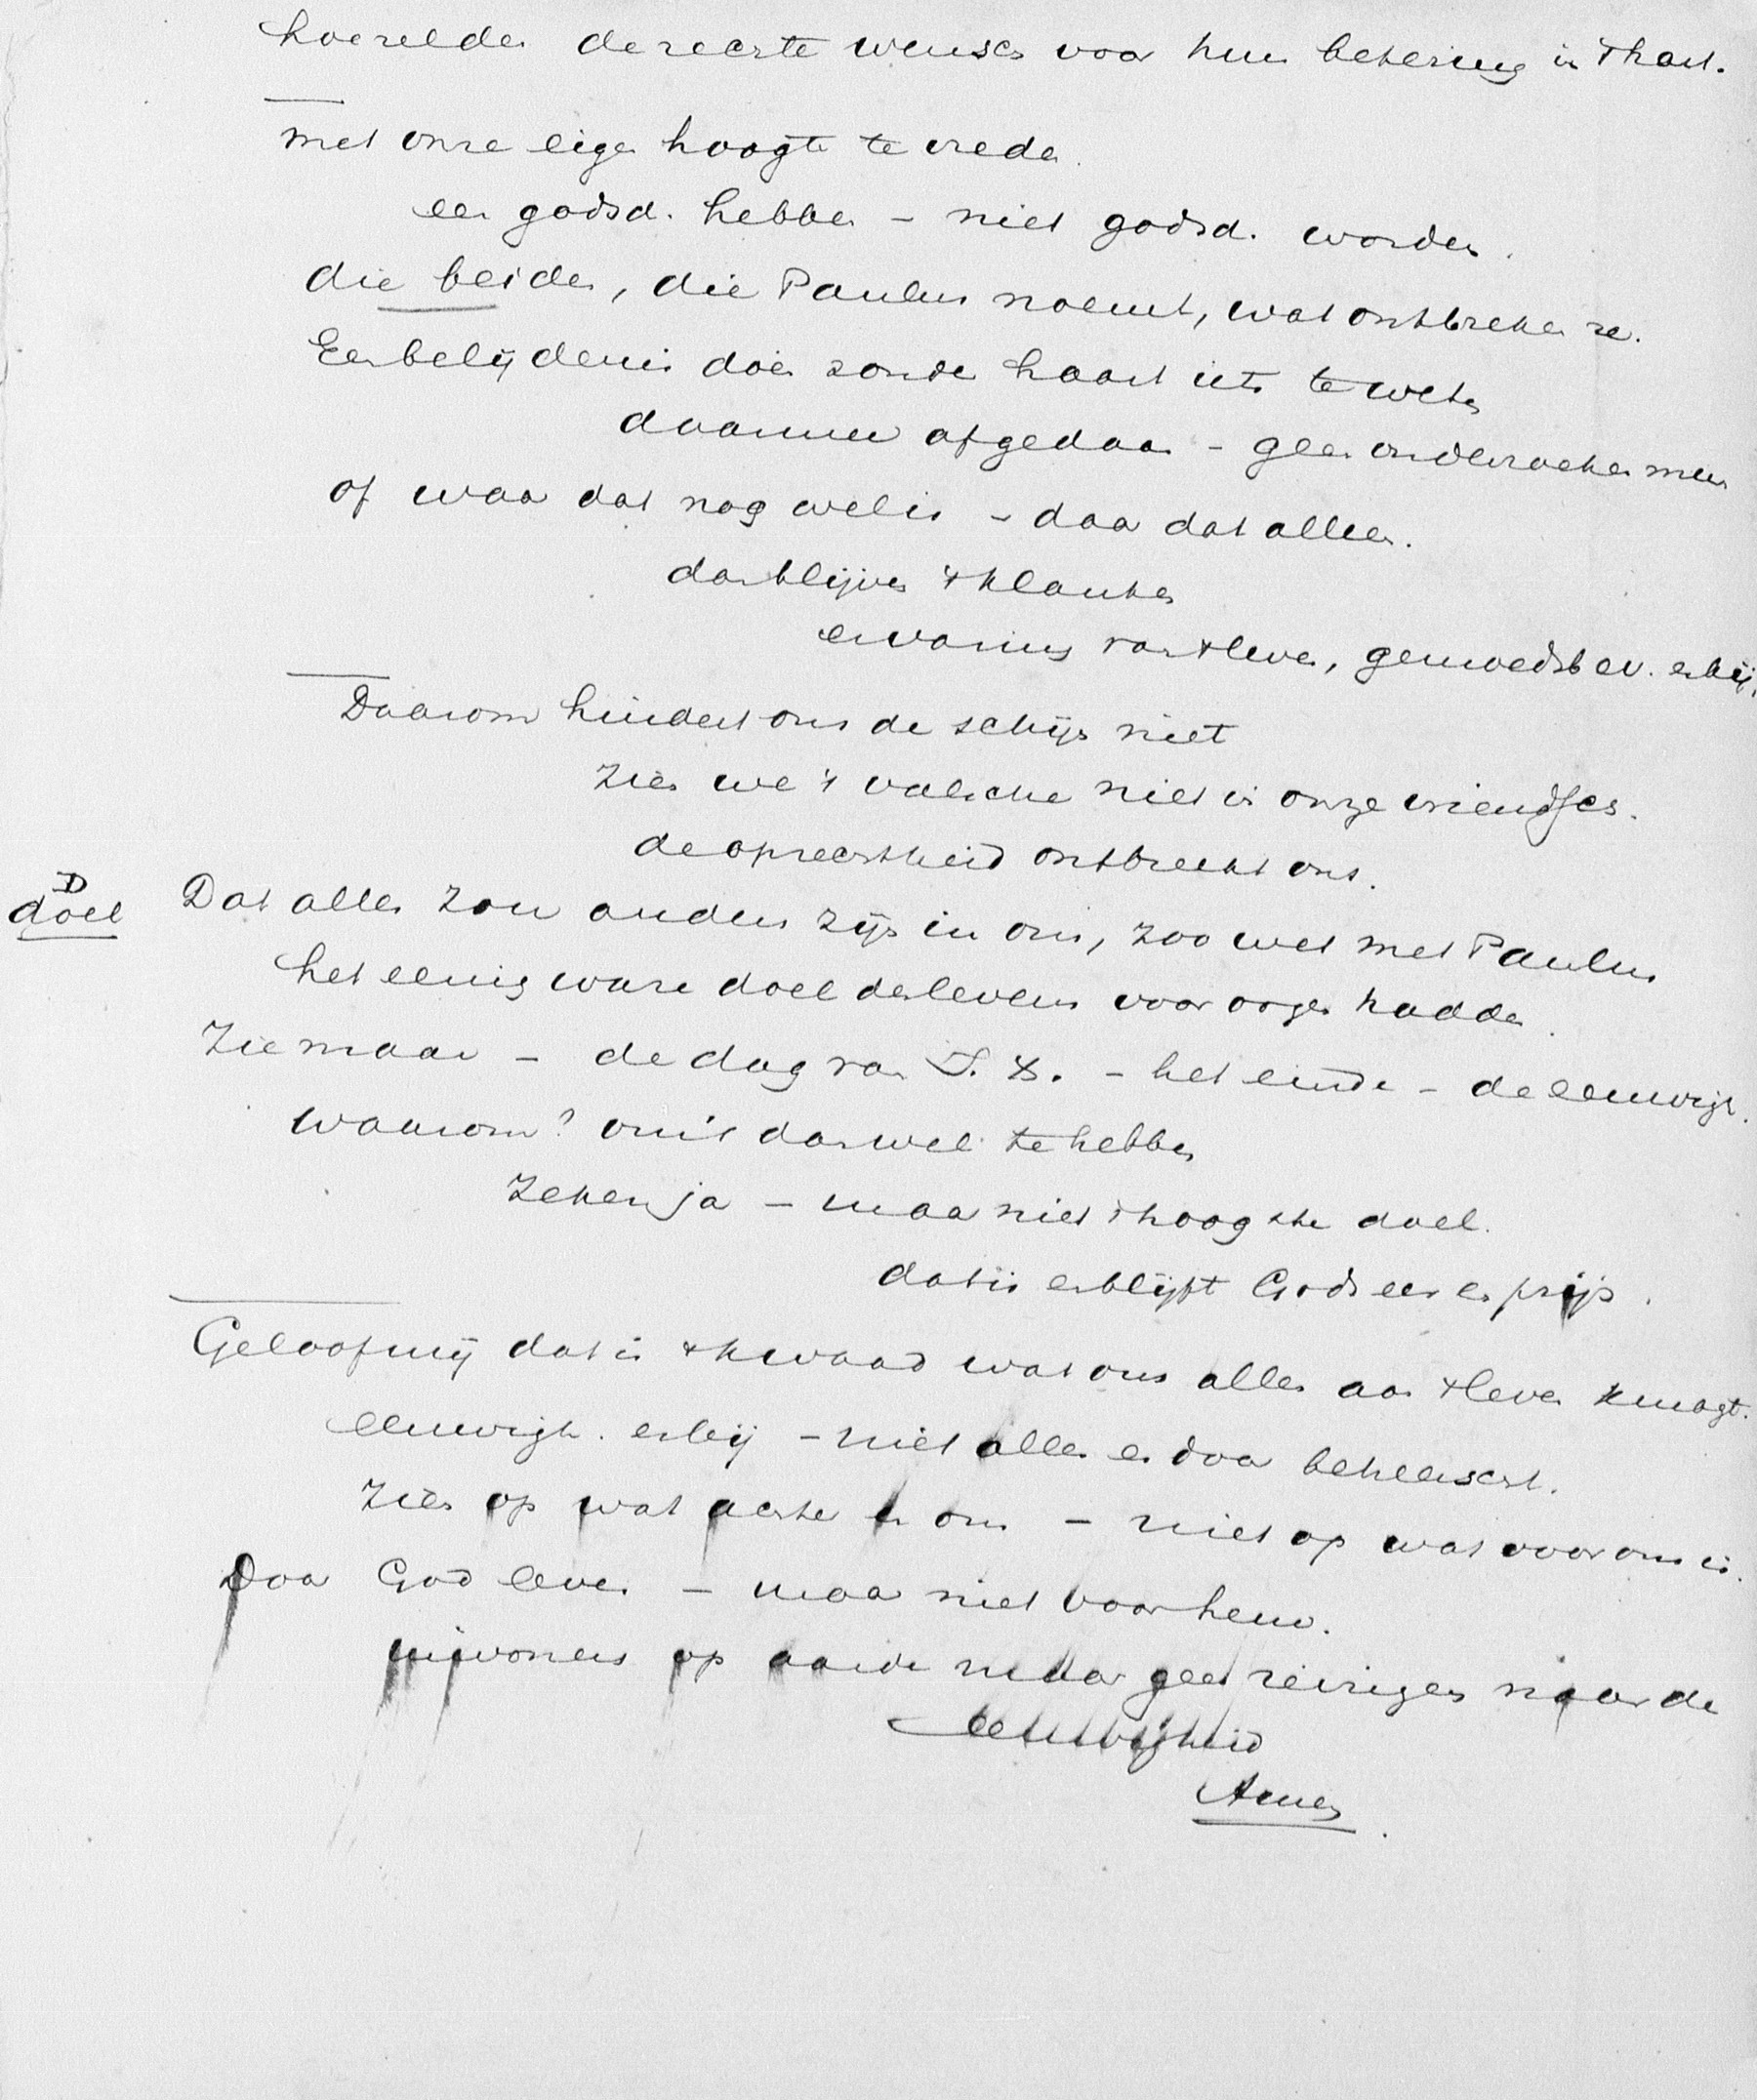 hoe zelden de rechte wensch voor hun bekering in 't hart.
met onze eigen hoogte tevreden.
een godsd. hebben - niet godsd. worden.
die beiden, die Paulus noemt, wat ontbreken ze.
Een belijdenis doen zonder haast iets te weten
daarmee afgedaan - geen onderzoeken meer
of waar dat nog wel is - daar dat alleen.
dan blijven 't klanken
ervaring van 't leven, gemoedsbev. erbij.
Daarom hindert ons de schijn niet
zien we 't valsche niet in onze vriendsch.
de oprechtheid ontbreekt ons.
D
doel
Dat alles zou anders zijn in ons, zoo we met Paulus
het eenig ware doel des levens voor oogen hadden.
Zie maar - de dag van J. X. - het einde - de eeuwigh.
waarom? om 't dan wel te hebben
Zeker ja - maar niet 't hoogste doel.
dat is en blijft Gods eer en prijs.
Geloof mij dat is 't kwaad wat ons allen aan 't leven knaagt.
eeuwigh. erbij - niet alles er door beheerscht.
Zien op wat achter ons - niet op wat voor ons is.
Door God leven - maar niet voor hem.
inwoners op aarde maar geen reizigers naar de
eeuwigheid
Amen.